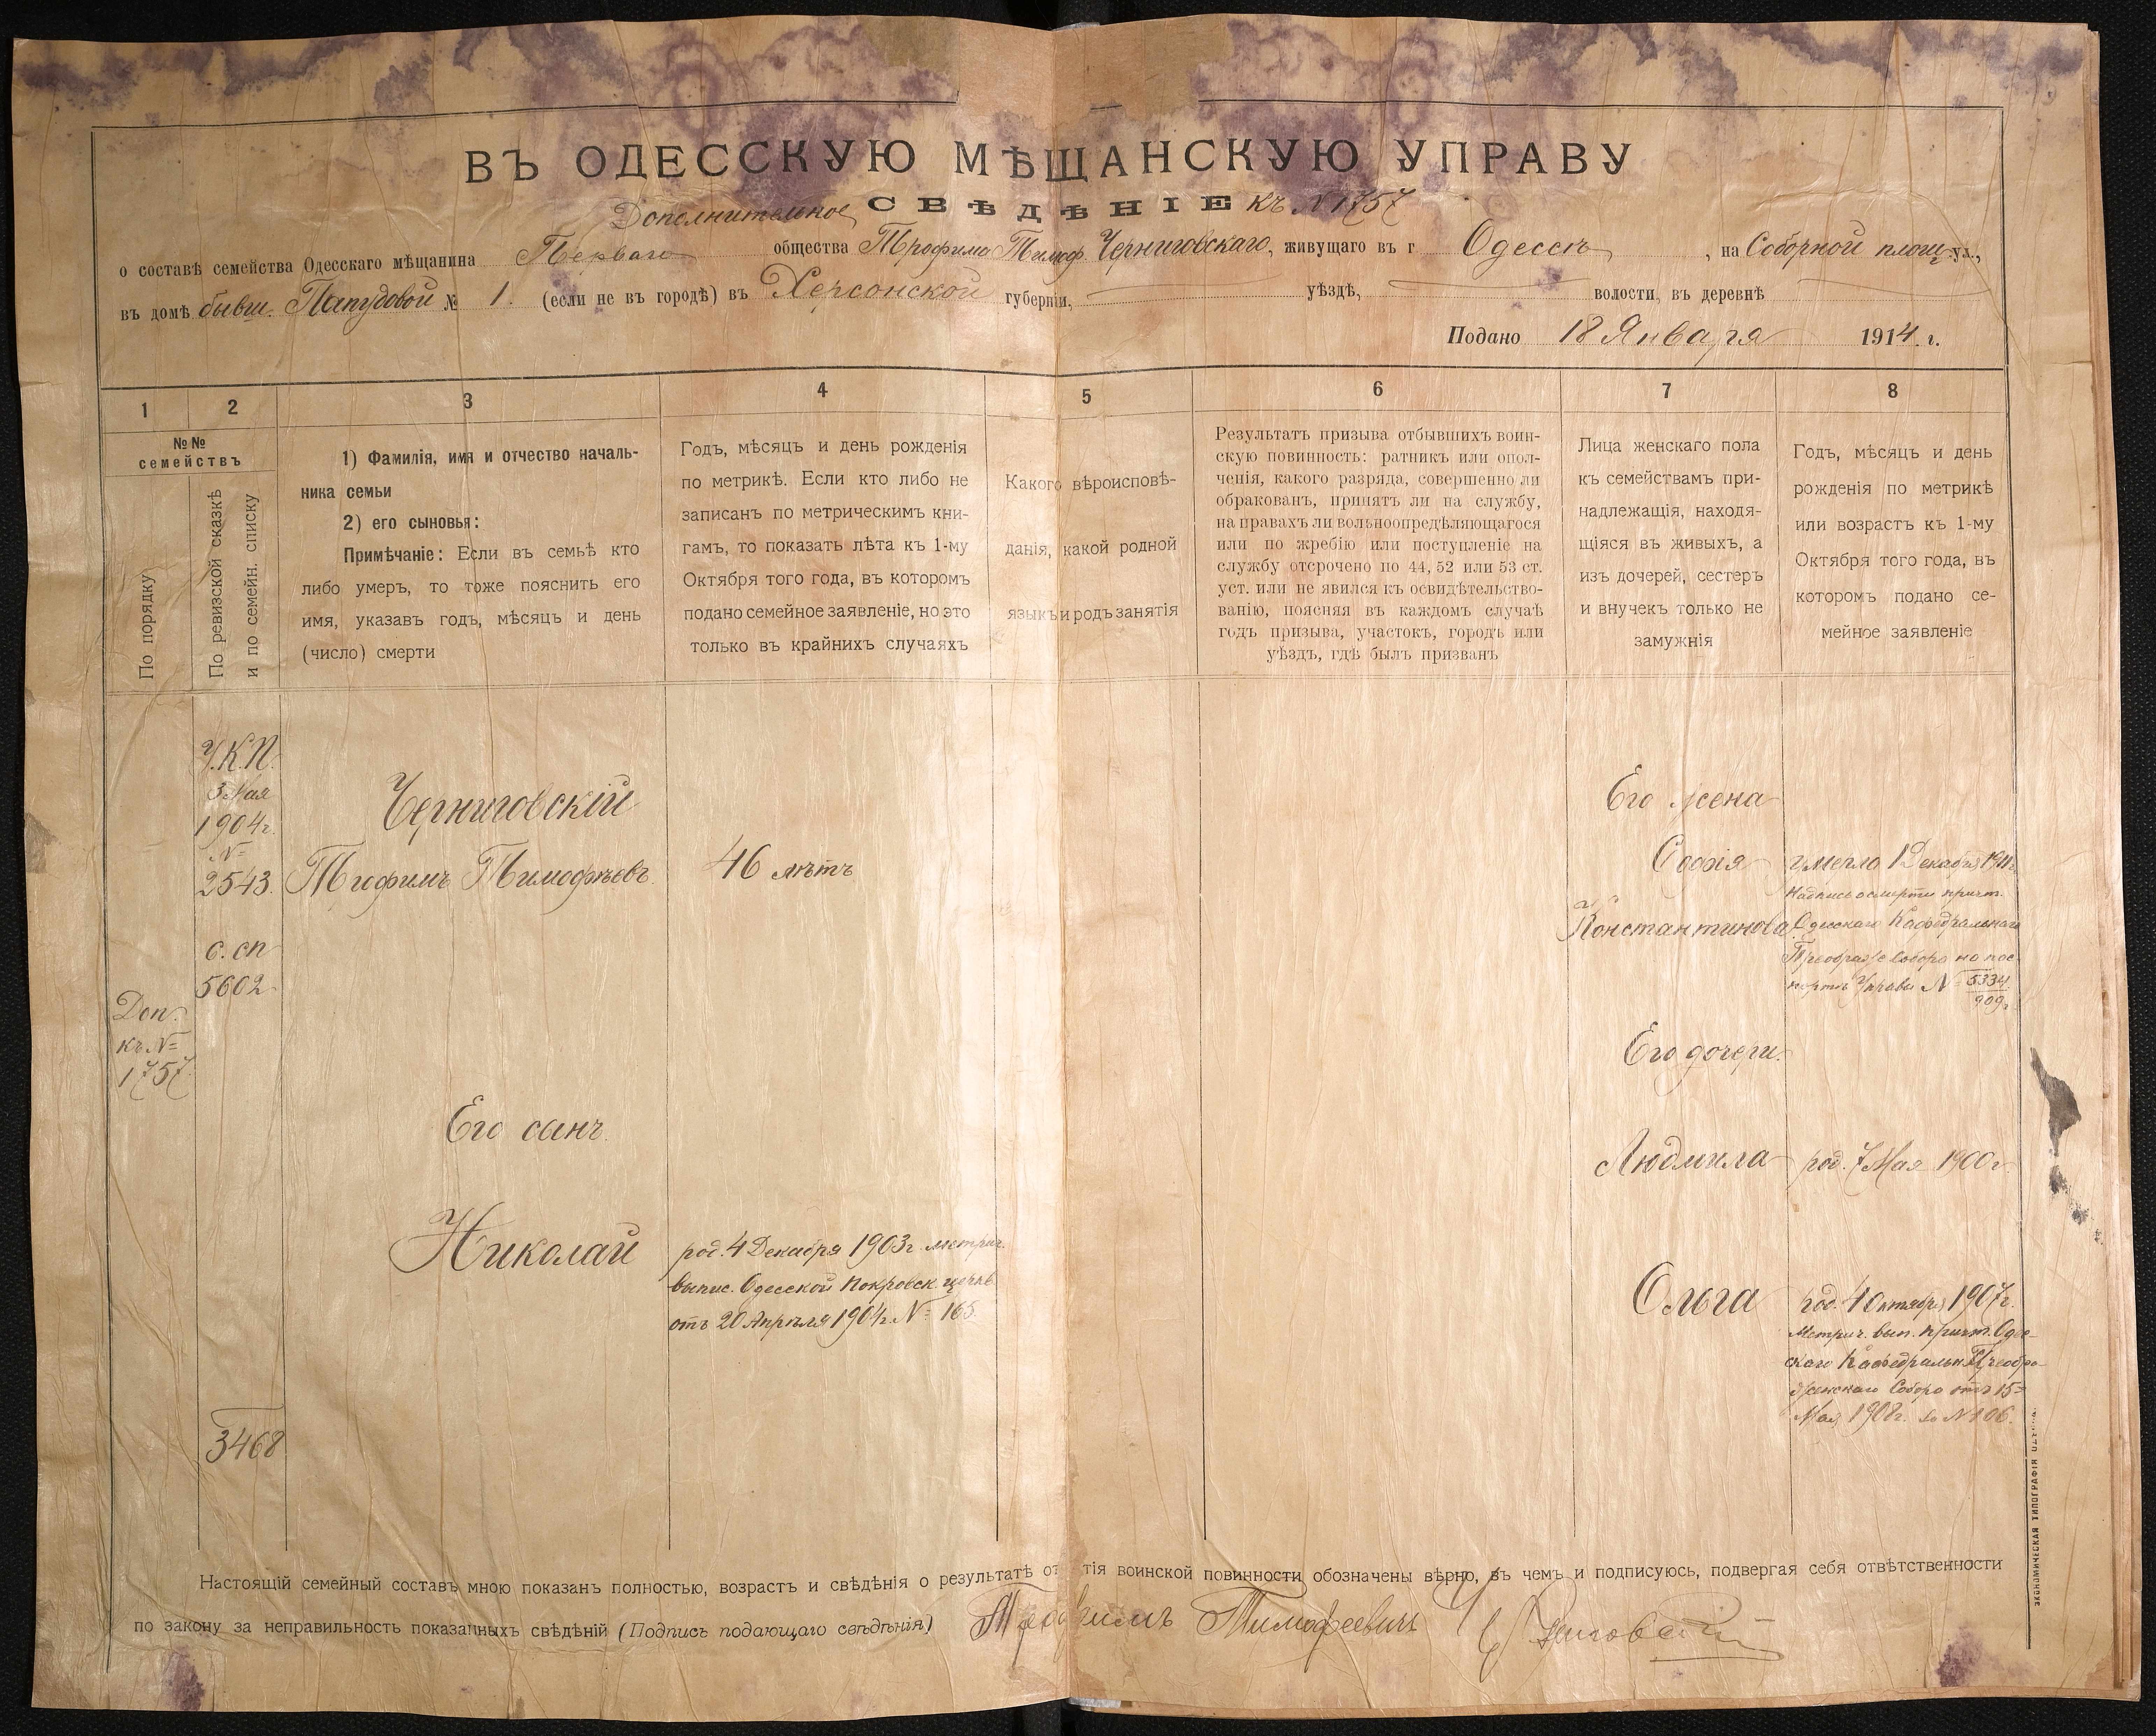 ВЪ ОДЕССКУЮ МѢЩАНСКУЮ УПРАВУ
Дополнительное СВѢДѢНІЕ къ №1757
о составѣ семейства Одесскаго мѣщанина Перваго общества Трофима Тимоф. Черниговскаго, живущаго въ г Одессѣ, на Соборной площ. ул.,
въ домѣ бывш. Папудовой № 1. (если не въ городѣ) въ Херсонской губерніи, уѣздѣ, волости, въ деревнѣ
Подано 18 Января 1914. г.
1 2 3 4 5 6 7 8
№№
семействъ
По порядку
По ревизской сказкѣ
и по семейн. списку
1) Фамилія, имя и отчество началь-
ника семьи
2) его сыновья:
Примѣчаніе: Если въ семьѣ кто
либо умеръ, то тоже пояснить его
имя, указавъ годъ, мѣсяцъ и день
(число) смерти
Годъ, мѣсяцъ и день рожденія
по метрикѣ. Если кто либо не
записанъ по метрическимъ кни-
гамъ, то показать лѣта къ 1-му
Октября того года, въ которомъ
подано семейное заявленіе, но это
только въ крайнихъ случаяхъ
Какого вѣроисповѣ-
данія, какой родной
языкъ и родъ занятія
Результатъ призыва отбывшихъ воин-
скую повинность: ратникъ или опол-
ченія, какого разряда, совершенно ли
обракованъ, принятъ ли на службу,
на правахъ ли вольноопредѣляющагося
или по жребію или поступленіе на
службу отсрочено по 44, 52 или 53 ст.
уст. или не явился къ освидѣтельство-
ванію, поясняя въ каждомъ случаѣ
годъ призыва, участокъ, городъ или
уѣздъ, гдѣ былъ призванъ
Лица женскаго пола
къ семействамъ при-
надлежащія, находя-
щіяся въ живыхъ, а
изъ дочерей, сестеръ
и внучекъ только не
замужнія
Годъ, мѣсяцъ и день
рожденія по метрикѣ
или возрастъ къ 1-му
Октября того года, въ
которомъ подано се-
мейное заявленіе
У.К.П.
3 Мая
1904г.
№
2543.
с. сп
5602
Доп.
къ №
1757
Черниговскій
Трофимъ Тимофѣевъ.
46 лѣтъ
Его жена
Софія
Константинова
умерла 1 Декабря 1911г.
Надпись о смерти причт.
Одесскаго Кафедральнаго
Преображ. Собора на пас-
портѣ Управы № 5334
909г.
Его дочери.
Его сынъ.
Людмила род. 7 Мая 1900г.
Николай
род. 4 Декабря 1903г. метрич.
выпис. Одесской Покровск. церкв.
отъ 20 Апрѣля 1904г. № 165.
Ольга
род. 4 Октября 1907г.
Метрич. вып. причт. Одес-
скаго Кафедральн. Преобра-
женскаго Собора отъ 15
Мая 1908г. за №106.
3468
ЭКОНОМИЧЕСКАЯ ТИПОГРАФІЯ
Настоящій семейный составъ мною показанъ полностью, возрастъ и свѣдѣнія о результатѣ от тія воинской повинности обозначены вѣрно, въ чемъ и подписуюсь, подвергая себя отвѣтственности
по закону за неправильность показанныхъ свѣдѣній (Подпись подающаго свѣдѣнія) Трофимъ Тимофеевичъ Черниговскій